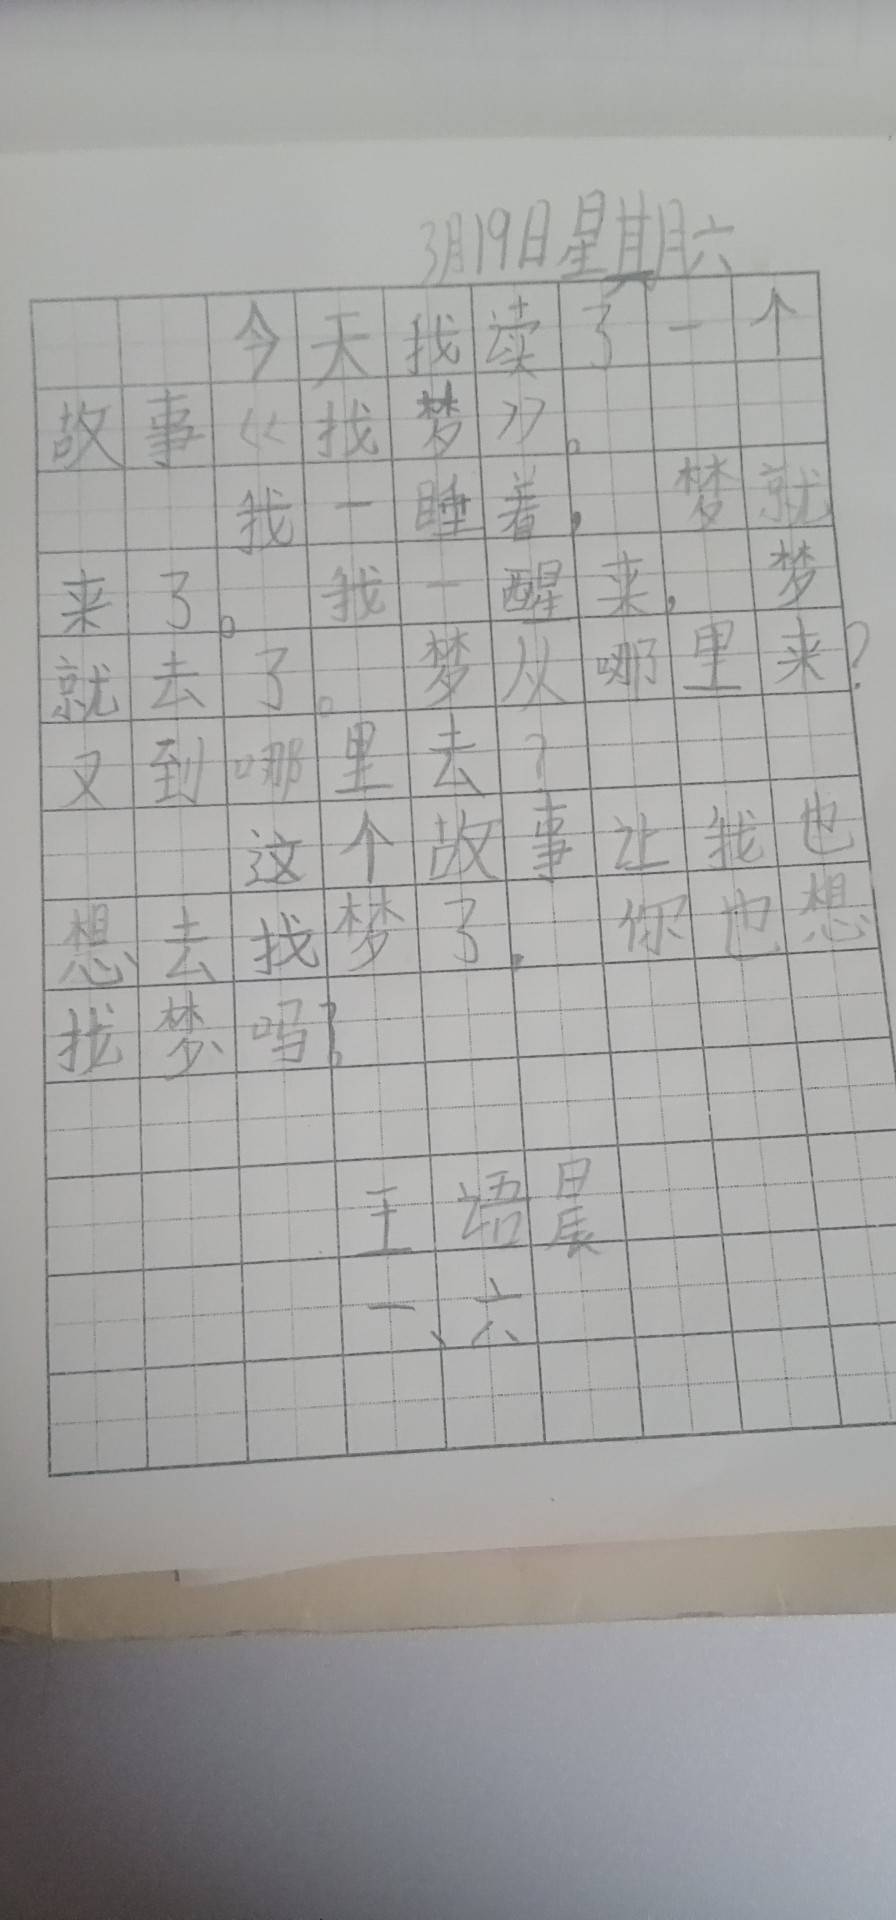 3月19日星期六
今天找读了一个
故事《找梦》。
我一睡着，梦就
来了。我一醒来，梦
就去了。梦从哪里来？
又到哪里去？
这个故事让我也
想去找梦了。你也想
找梦吗？
王语晨
一、六